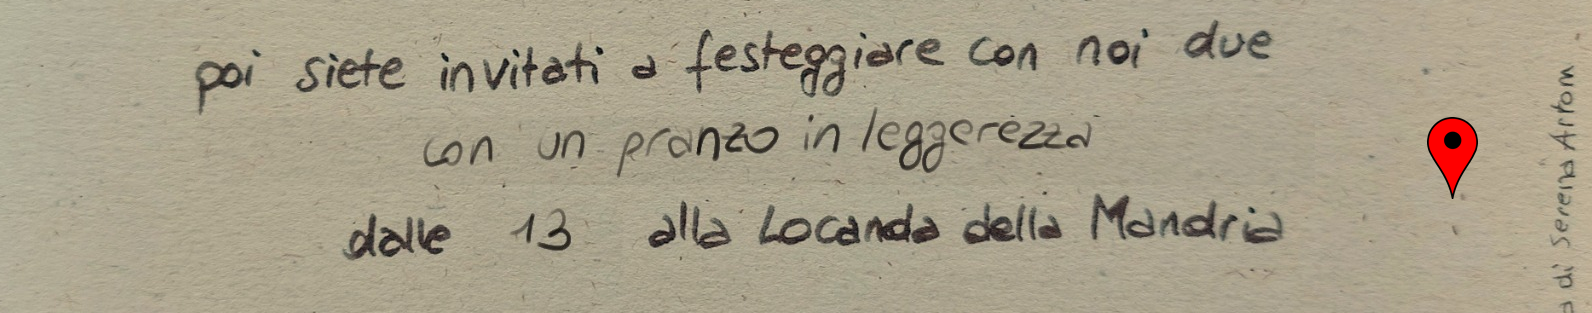 poi siete invitati a festeggiare con noi due
con un pranzo in leggerezza
dalle 13 alla Locanda della Mandria
di Serena Artom